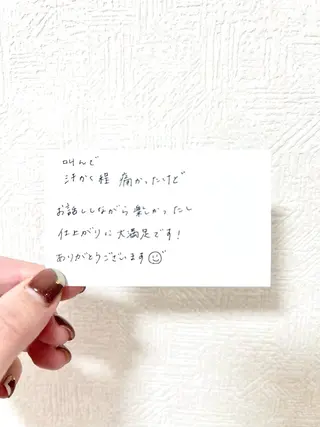 叫んで
汗かく程 痛かったけど
お話ししながら楽しかったし
仕上がりに大満足です！
ありがとうございます